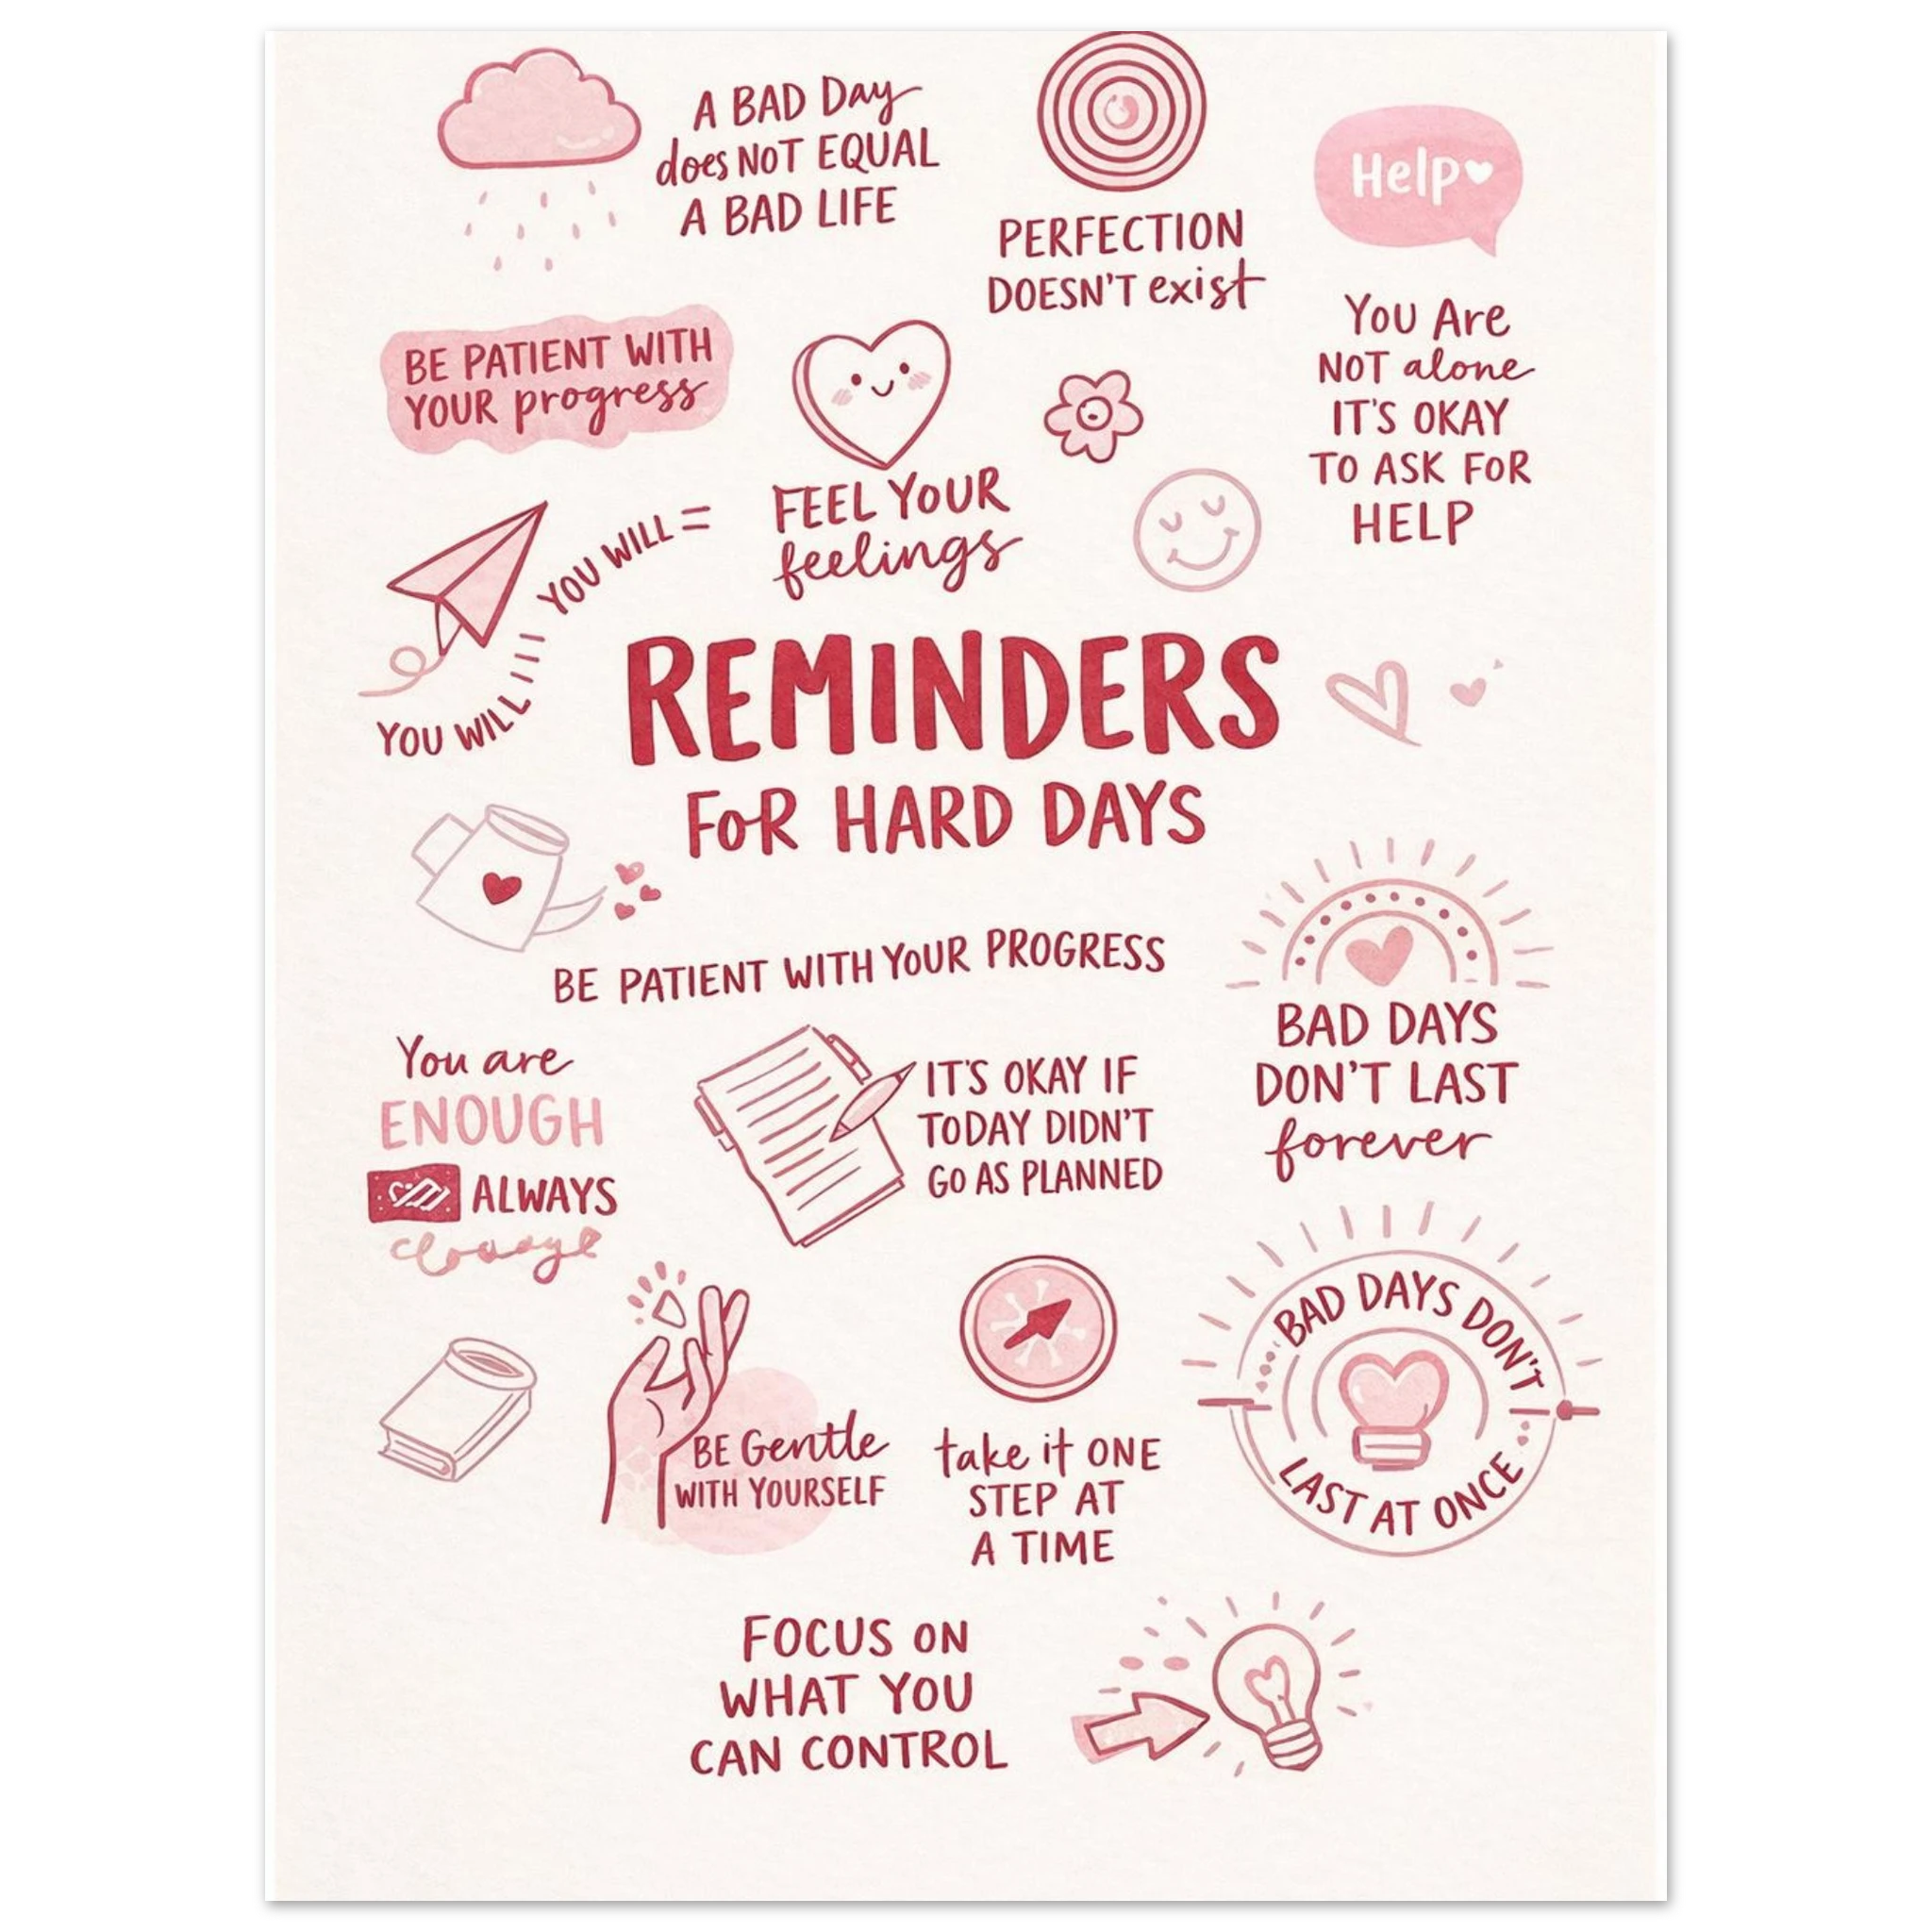 A BAD Day
does NOT EQUAL
A BAD LIFE
PERFECTION
DOESN'T exist
Help
YOU Are
NOT alone
IT'S OKAY
TO ASK FOR
HELP
BE PATIENT WITH
YOUR progress
FEEL YOUR
feelings
YOU WILL YOU WILL =
REMINDERS
FOR HARD DAYS
BE PATIENT WITH YOUR PROGRESS
You are
ENOUGH
ALWAYS
IT'S OKAY IF
TODAY DIDN'T
GO AS PLANNED
BAD DAYS
DON'T LAST
forever
BAD DAYS DON'T
LAST AT ONCE
BE Gentle
WITH YOURSELF
take it ONE
STEP AT
A TIME
FOCUS ON
WHAT YOU
CAN CONTROL